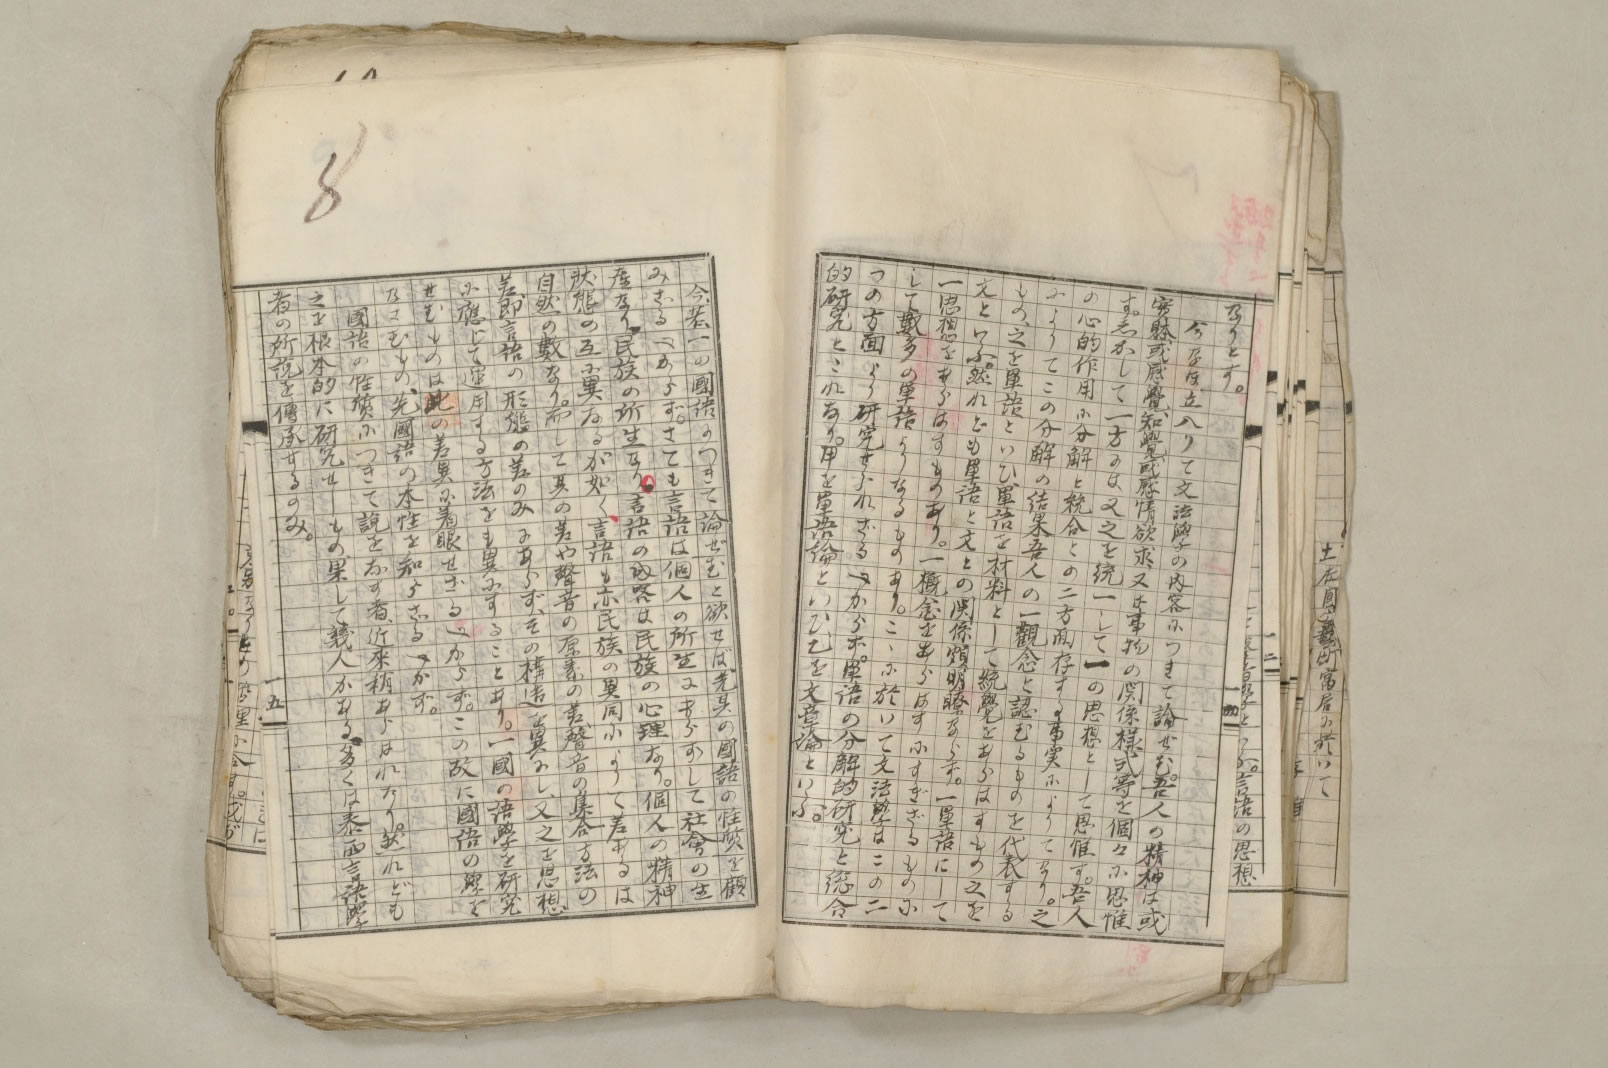 土佐國
富居に於いて
言語の思想
なりとす。
今なほ立入りて文法學の内容につきて論ぜむ。吾人の精神は或
実躰或感覺、知覺或感情欲求又は事物の関係樣式等を個々に思惟
す。しかして一方には又之を統一して一の思想として思惟す。吾人
の心的作用に分解と統合との二方面存する事実によりてなり。之
によりてこの分解の結果吾人の一觀念と認むるものを代表する
もの、之を單語といひ、單語を材料として統覺をあらはすもの之を
文といふ。然れども單語と文との関係頗明瞭ならず。一單語にして
一思想をあらはすものあり。一概念をあらはすにすぎざるものに
して數多の單語よりなるものあり。こゝに於いて文法學はこの二
つの方面より研究せられざるべからず。單語の分解的研究と綜合
的研究とこれなり。甲を單語論といひ乙を文章論といふ。
一四
8
今、若、一の國語につきて論ぜむと欲せば先其の國語の性質を顧
みざるべからず。さても言語は個人の所生にあらずして社會の生
産なり、民族の所生なり。言語の成畧は民族の心理なり。個人の精神
狀態の互に異なるが如く、言語も亦民族の異同によりて差あるは
自然の數なり。而して其の差や聲音の原素の差、聲音の集合方法の
差即言語の形態の差のみにあらず、その構造を異にし、又之を思想
に應じて運用する方法をも異にすることあり。一國の語學を研究
せむものは此の差異に着眼せざるべからず。この故に國語の學を
なさむもの、先國語の本性を知らざるべからず。
國語の性質につきて說をなす者、近來稍あらはれたり。然れども
之を根本的に研究せしもの、果して幾人かある。多くは泰西言語學
者の所說を傳承せるのみ。
一五